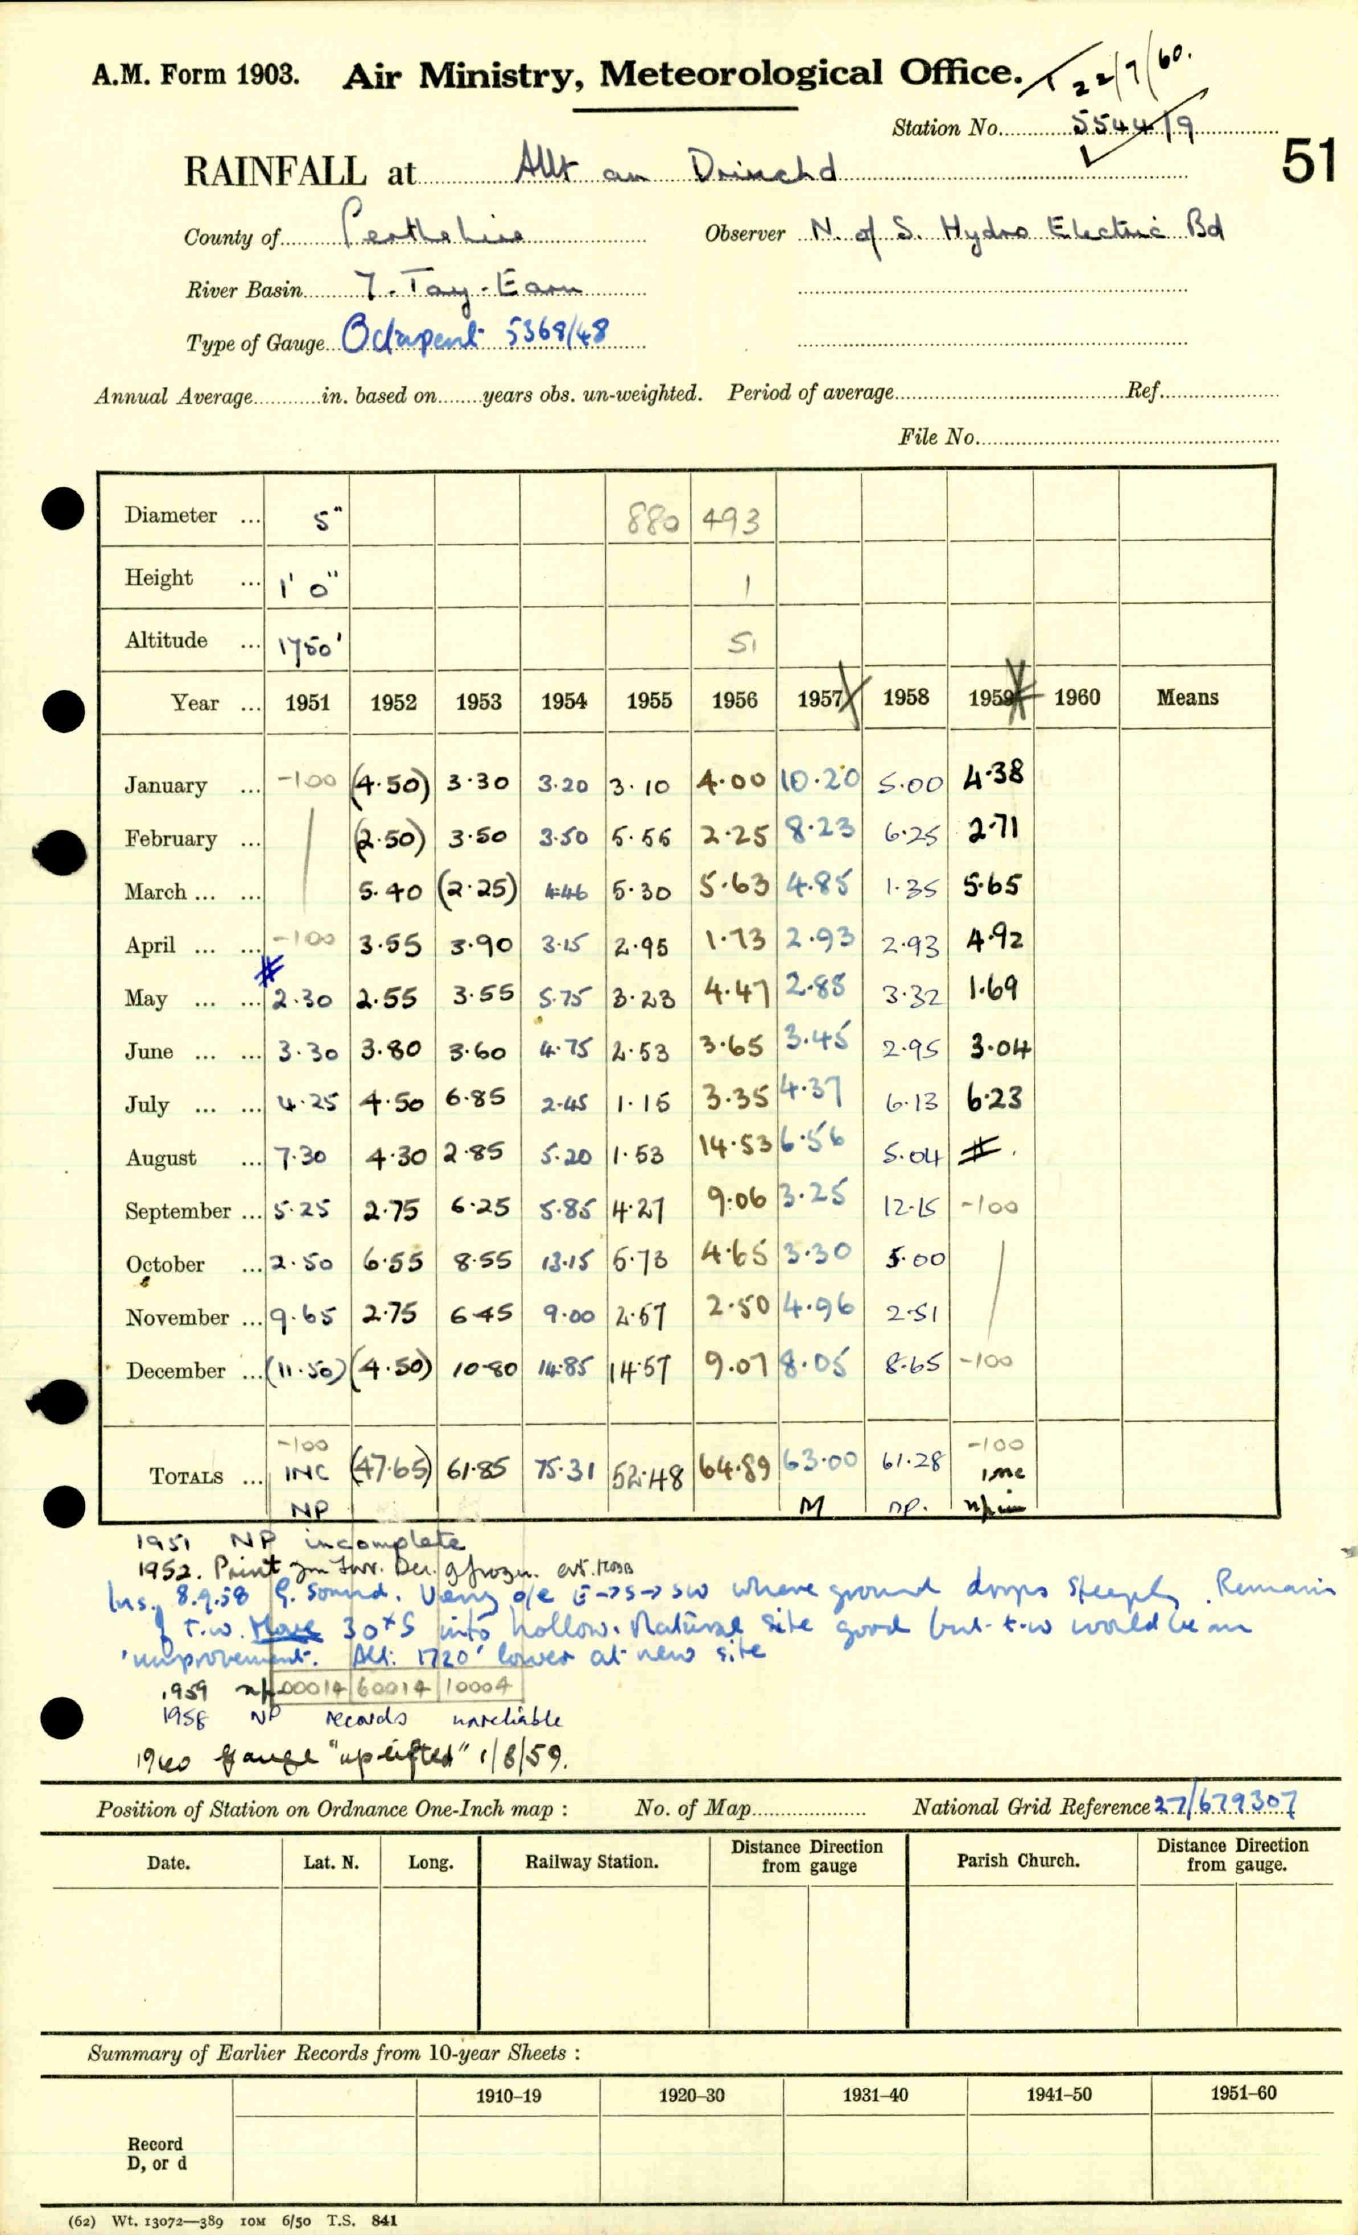 A.M. Form 1903. Air Ministry, Meteorological Office. T 22/7/60.
Station No. 5544/9
51
RAINFALL at Allt an Driuchd
County of Perthshire Observer N. of S. Hydro Electric Bd
River Basin 7. Tay-Earn
Type of Gauge Octapent 5368/48
Annual Average in. based on years obs. un-weighted. Period of average Ref.
File No.
Diameter ... 5" 880 493
Height ... 1' 0" 1
Altitude ... 1750' 51
Year ... 1951 1952 1953 1954 1955 1956 1957 1958 1959 1960 Means
January ... -100 (4.50) 3.30 3.20 3.10 4.00 10.20 5.00 4.38
February ... (2.50) 3.50 3.50 5.55 2.25 8.23 6.25 2.71
March ... ... 5.40 (2.25) 4.46 5.30 5.63 4.85 1.35 5.65
April ... ... -100 3.55 3.90 3.15 2.95 1.73 2.93 2.93 4.92
May ... ... 2.30 2.55 3.55 5.75 3.23 4.47 2.85 3.32 1.69
June ... ... 3.30 3.80 3.60 4.75 2.53 3.65 3.45 2.95 3.04
July ... ... 4.25 4.50 6.85 2.45 1.15 3.35 4.37 6.13 6.23
August ... 7.30 4.30 2.85 5.20 1.53 14.53 6.56 5.04 #.
September ... 5.25 2.75 6.25 5.85 4.27 9.06 3.25 12.15 -100
October ... 2.50 6.55 8.55 13.15 5.73 4.65 3.30 5.00
November ... 9.65 2.75 6.45 9.00 2.57 2.50 4.96 2.51
December ... (11.50) (4.50) 10.80 14.85 14.57 9.07 8.05 8.65 -100
-100 -100
TOTALS ... INC (47.65) 61.85 75.31 52.48 64.89 63.00 61.28 inc
NP M np.
1951 NP incomplete
1952. Print Dec. g frozen. est.
Ins. 8.9.58 G. sound. Very o/e E→S→SW where ground drops steeply. Remains
t.w. Move 30x S into hollow. Natural site good but t.w would be an
'improvement. Alt. 1720' lower at new site
1959 np 00014 60014 10004
1958 NP records unreliable
1960 gauge "uplifted" 1/8/59.
Position of Station on Ordnance One-Inch map : No. of Map National Grid Reference 27/679307
Date. Lat. N. Long. Railway Station. Distance Direction from gauge Parish Church. Distance Direction from gauge.
Summary of Earlier Records from 10-year Sheets :
1910–19 1920–30 1931–40 1941–50 1951–60
Record
D, or d
(62) Wt. 13072—389 10M 6/50 T.S. 841